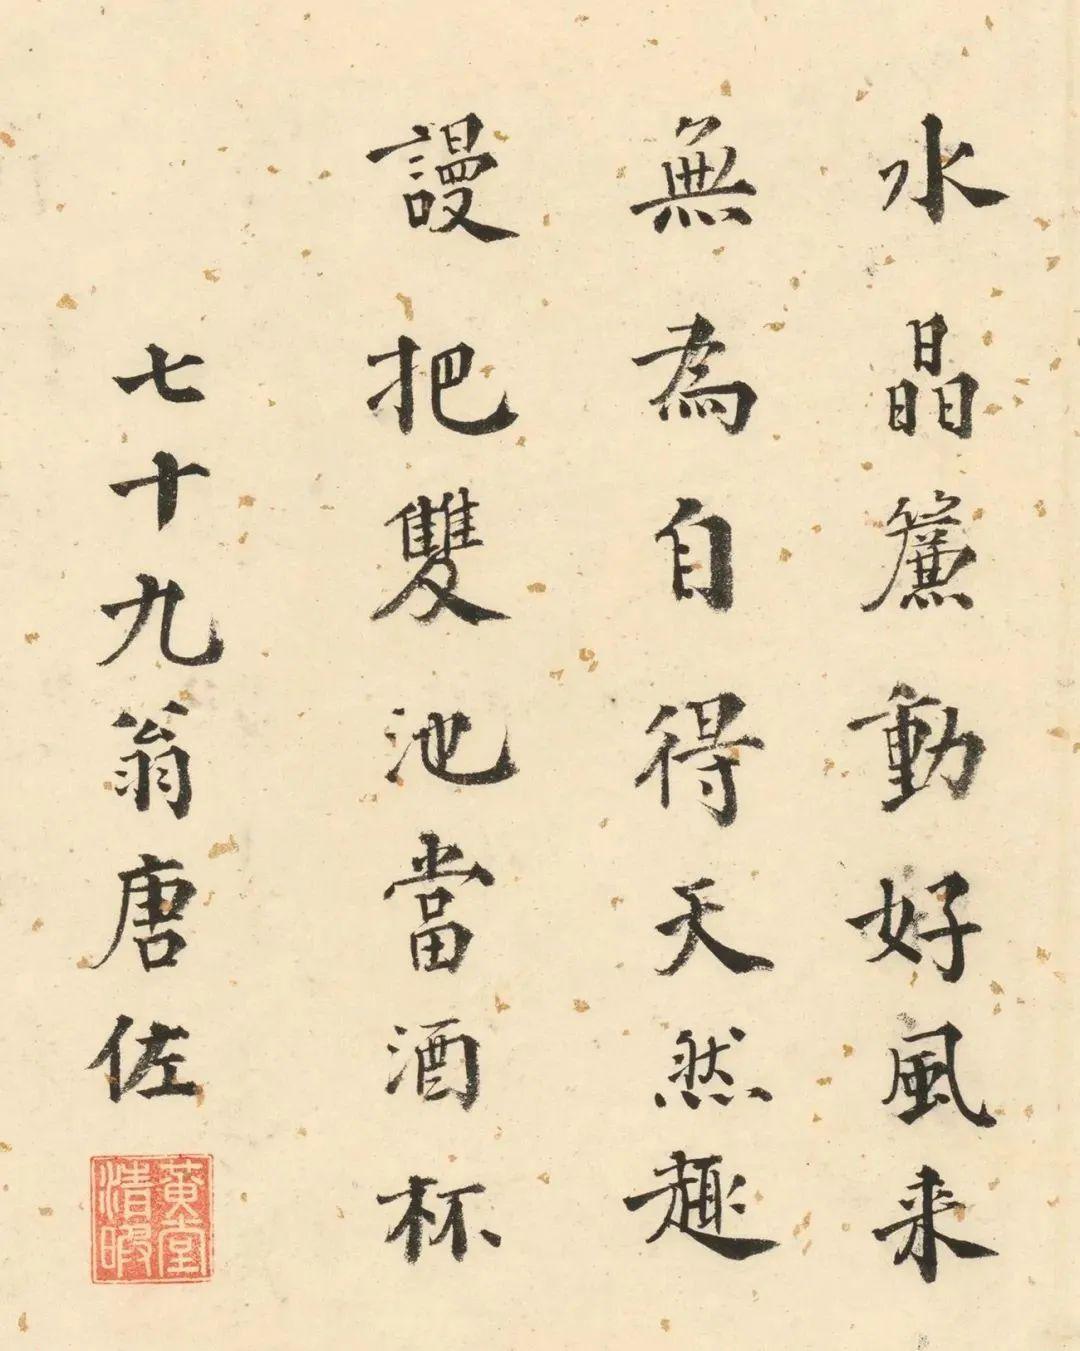 水晶簾動好風来
無為自得天然趣
謾把雙池當酒杯
七十九翁唐佐
黄堂清暇